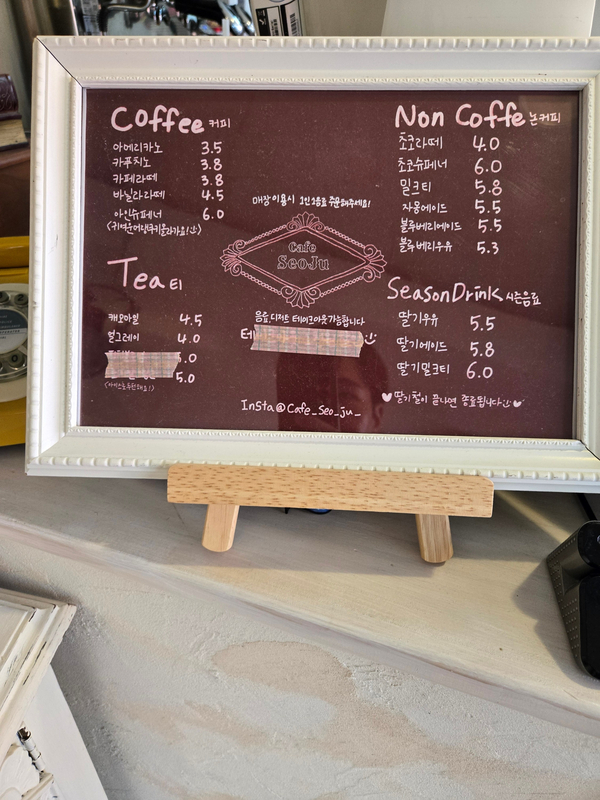 Coffee 커피
아메리카노 3.5
카푸치노 3.8
카페라떼 3.8
바닐라라떼 4.5
아인슈페너 6.0
(귀여운어린쿠키올라가요!)
Tea 티
캐모마일 4.5
얼그레이 4.0
.0
5.0
매장이용시 1인 1음료 주문해주세요!
Cafe
SeoJu
음료 디저트 테이크아웃가능합니다
테
Insta@Cafe_Seo_ju_
Non Coffe 논커피
초코라떼 4.0
초코슈페너 6.0
밀크티 5.8
자몽에이드 5.5
블루베리에이드 5.5
블루베리우유 5.3
SeasonDrink 시즌음료
딸기우유 5.5
딸기에이드 5.8
딸기밀크티 6.0
♥딸기철이 끝나면 종료됩니다♥